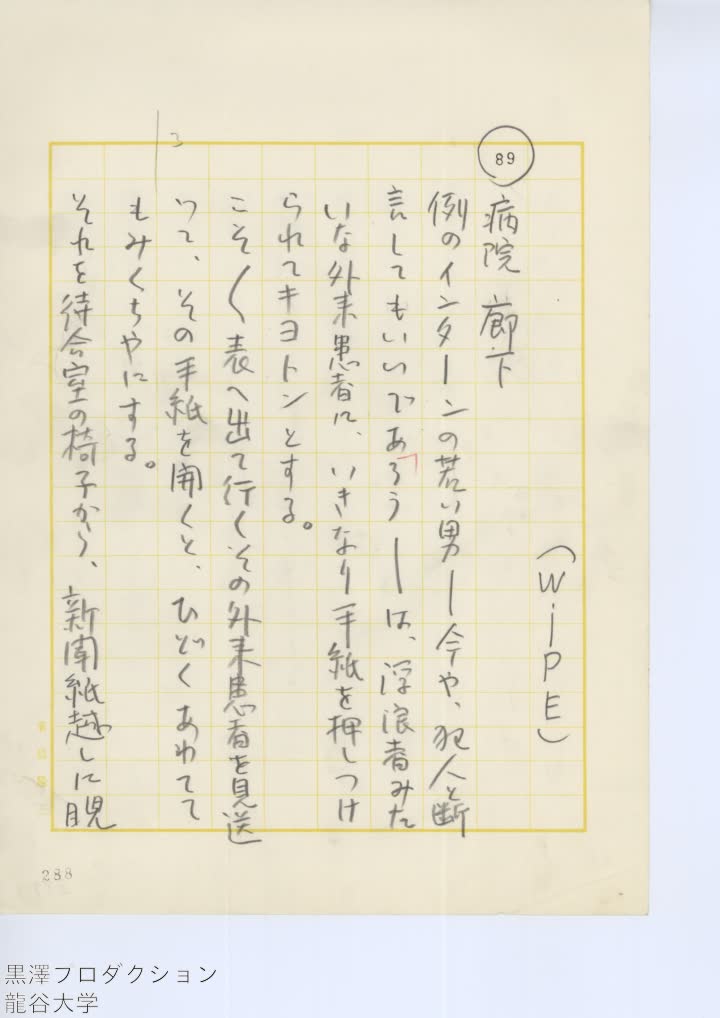 (WiPE)
89
病院 廊下
例のインターンの若い男—今や、犯人と断
言してもいいであろう—は、浮浪者みた
いな外来患者に、いきなり手紙を押しつけ
られてキヨトンとする。
こそ〱表へ出て行くその外来患者を見送
つて、その手紙を開くと、ひどくあわてて
もみくちやにする。
それを待合室の椅子から、新聞紙越しに覗
288
黒澤プロダクション
龍谷大学